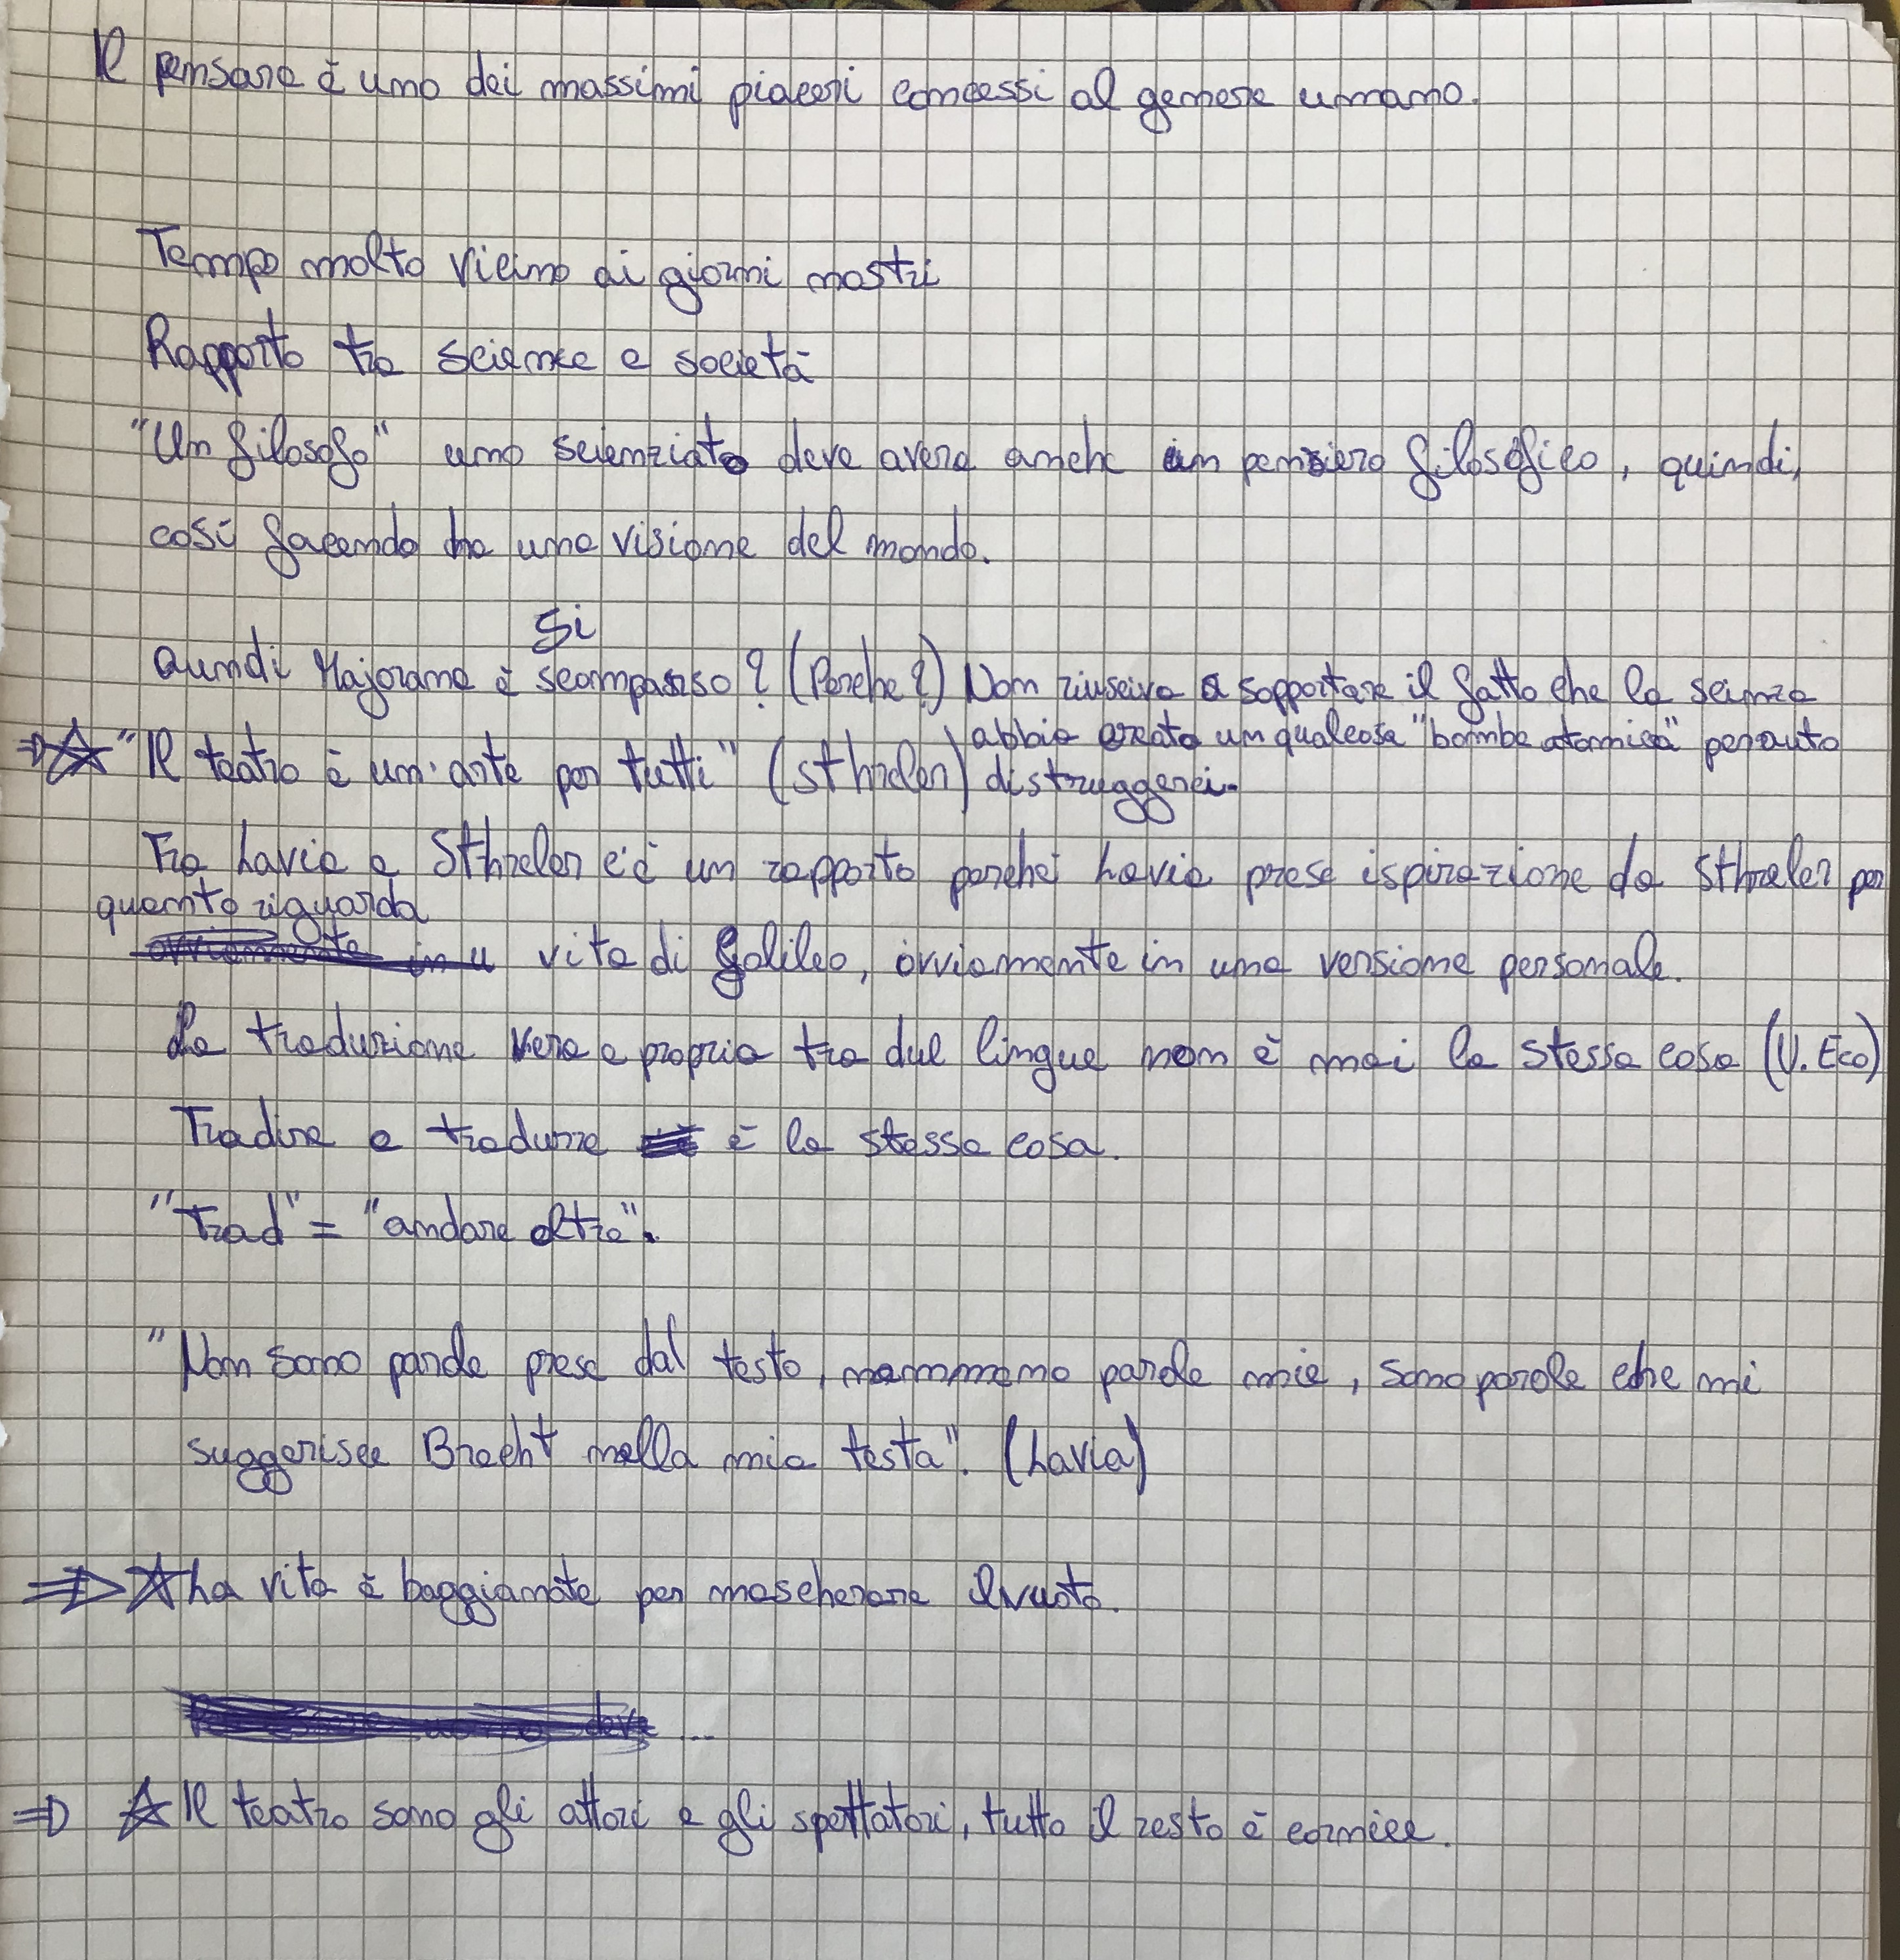 Il pensare è uno dei massimi piaceri concessi al genere umano.
Tempo molto vicino ai giorni nostri
Rapporto tra scienze e società
"Un filosofo" uno scienziato deve avere anche un pensiero filosofico, quindi,
così facendo ha una visione del mondo.
Si
Quindi Majorana è scomparso? (Perché?) Non riusciva a sopportare il fatto che la scienza
abbia creato un qualcosa "bomba atomica" per auto
⇒☆ "Il teatro è un'arte per tutti" (Sthreler) distruggerci.
Tra Lavia e Sthreler c'è un rapporto perché Lavia prese ispirazione da Sthreler per
quanto riguarda
vita di Galileo, ovviamente in una versione personale.
La traduzione vera e propria tra due lingue non è mai la stessa cosa (U. Eco)
Tradire e tradurre è la stessa cosa.
"Trad" = "andare oltre".
"Non sono parole prese dal testo, nemmeno parole mie, sono parole che mi
suggerisce Brecht nella mia testa". (Lavia)
⇒ ☆ La vita è baggianate per mascherare il vuoto.
...
⇒ ☆ Il teatro sono gli attori e gli spettatori, tutto il resto è cornice.